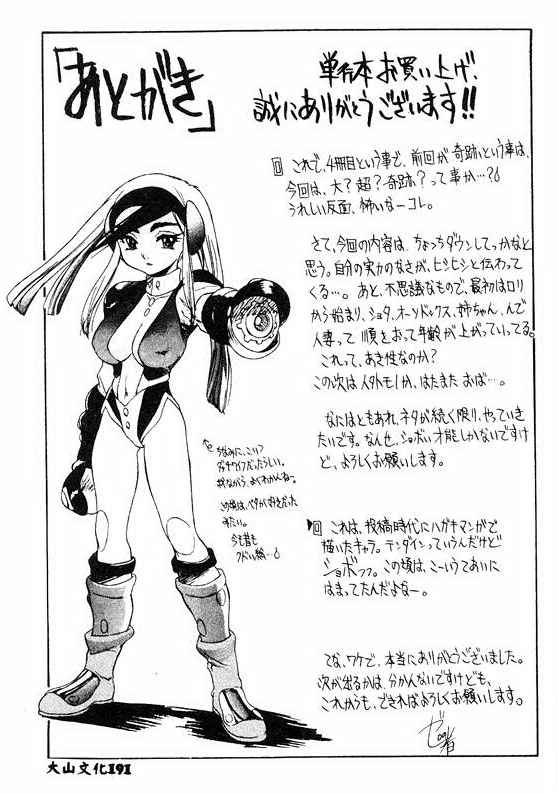 「あとがき」
単行本お買い上げ、
誠にありがとうございます!!
これで、4冊目という事で、前回が奇跡という事は、
今回は、大?超?奇跡?って事か…?
うれしい反面、怖いなーコレ。
さて、今回の内容は、ちょっちダウンしてっかなと
思う。自分の実力のなさが、ヒシヒシと伝わって
くる…。あと、不思議なもので、最初はロリ
から始まり、ショタ、オーソドックス、姉ちゃん、んで
人妻って順をおって年齢が上がっていってる。
これって、あき性なのか?
この次は
はたまた おば…。
なにはともあれ、ネタが続く限り、やっていき
たいです。なんせ、ショボい才能しかないですけ
ど、よろしくお願いします。
ちなみに、こいつ
だったらしい。
我ながら、よくわかんねー。
この頃は、
が好きだった
みたい。
今も昔も
これは、投稿時代にハガキマンガで
描いたキャラ。テンダインっていうんだけど
ショボッ。この頃は、こーいうてあいに
はまってたんだよなー。
てな、ワケで、本当にありがとうございました。
次が出るかは、分かんないですけども、
これからも、できればよろしくお願いします。
大山文化191